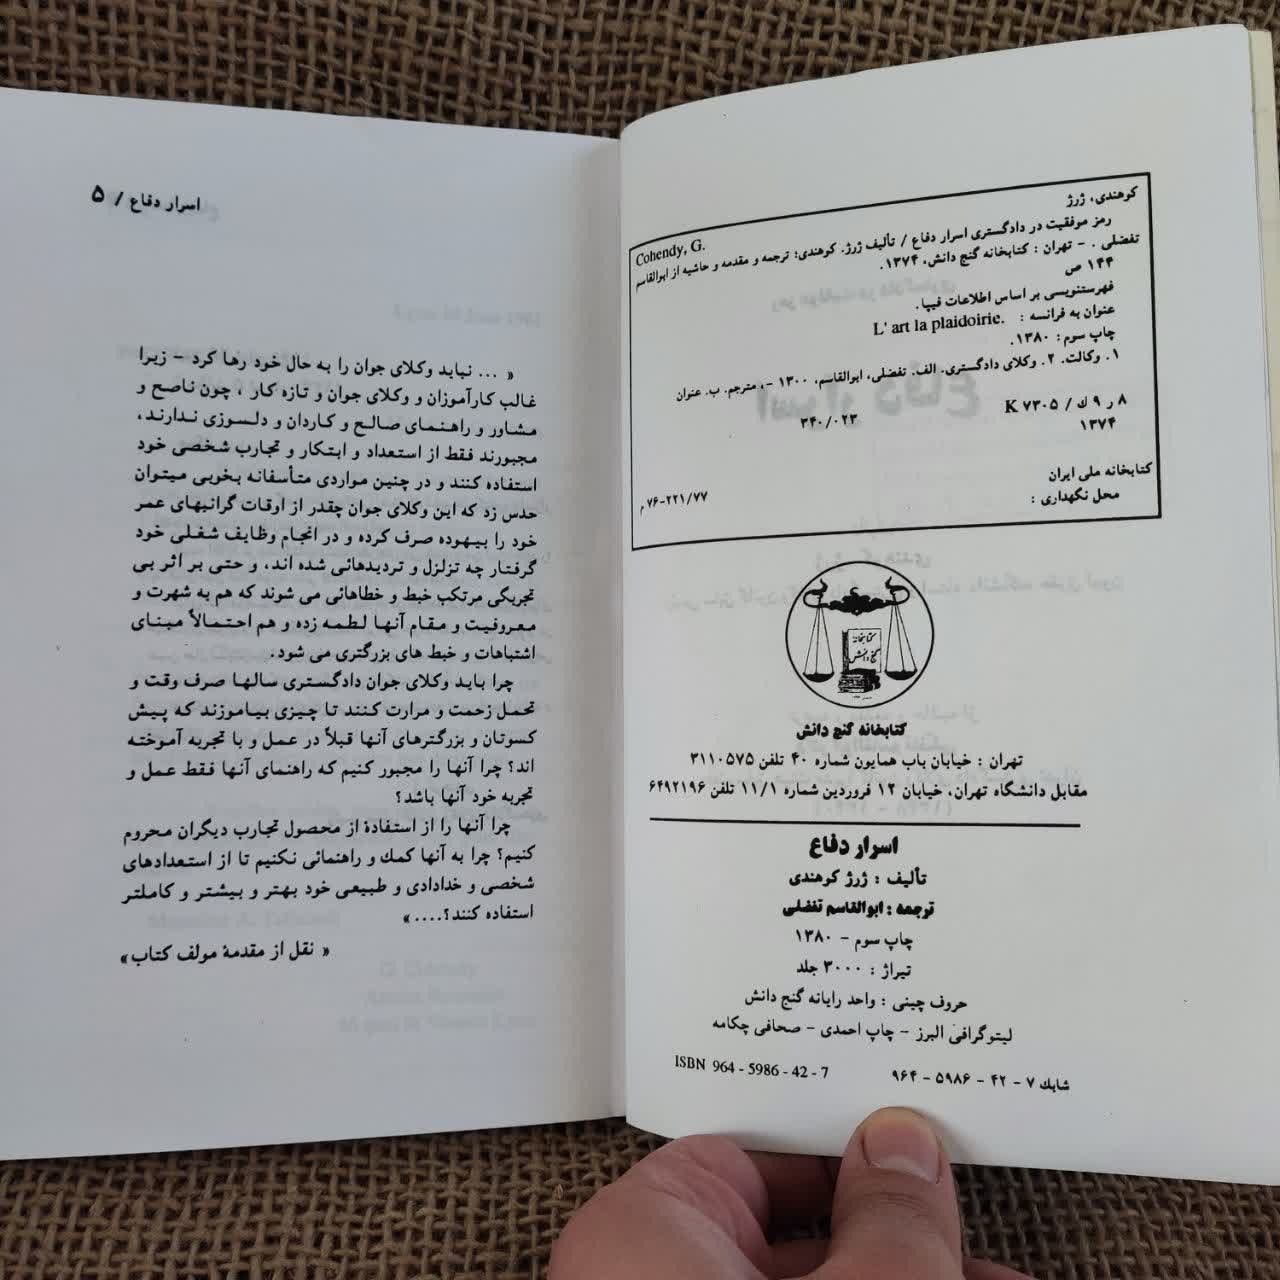 کوهندی، ژرژ
Cohendy, G.
رمز موفقیت در دادگستری اسرار دفاع / تألیف ژرژ. کوهندی؛ ترجمه و مقدمه و حاشیه از ابوالقاسم
تفضلی . - تهران : کتابخانه گنج دانش، ۱۳۷۴.
۱۴۴ ص
فهرستنویسی بر اساس اطلاعات فیپا.
عنوان به فرانسه : L' art la plaidoirie.
چاپ سوم : ۱۳۸۰.
۱. وکالت. ۲. وکلای دادگستری. الف. تفضلی، ابوالقاسم، ۱۳۰۰ -، مترجم. ب. عنوان
۸ ر ۹ ك / K ۷۳۰۵ ۳۴۰/۰۲۳
۱۳۷۴
کتابخانه ملی ایران
محل نگهداری : ۷۶-۲۲۱/۷۷م
کتابخانه
گنج دانش
کتابخانه گنج دانش
تهران : خیابان باب همایون شماره ۴۰ تلفن ۳۱۱۰۵۷۵
مقابل دانشگاه تهران، خیابان ۱۲ فروردین شماره ۱۱/۱ تلفن ۶۴۹۲۱۹۶
اسرار دفاع
تألیف : ژرژ کوهندی
ترجمه : ابوالقاسم تفضلی
چاپ سوم - ۱۳۸۰
تیراژ : ۳۰۰۰ جلد
حروف چینی : واحد رایانه گنج دانش
لیتوگرافی البرز - چاپ احمدی - صحافی چکامه
شابك ۷ - ۴۲ - ۵۹۸۶ - ۹۶۴ ISBN 964 - 5986 - 42 - 7
اسرار دفاع / ۵
« ... نباید وکلای جوان را به حال خود رها کرد - زیرا
غالب کارآموزان و وکلای جوان و تازه کار ، چون ناصح و
مشاور و راهنمای صالح و کاردان و دلسوزی ندارند،
مجبورند فقط از استعداد و ابتکار و تجارب شخصی خود
استفاده کنند و در چنین مواردی متأسفانه بخوبی میتوان
حدس زد که این وکلای جوان چقدر از اوقات گرانبهای عمر
خود را بیهوده صرف کرده و در انجام وظایف شغلی خود
گرفتار چه تزلزل و تردیدهائی شده اند، و حتی بر اثر بی
تجربگی مرتکب خبط و خطاهائی می شوند که هم به شهرت و
معروفیت و مقام آنها لطمه زده و هم احتمالاً مبنای
اشتباهات و خبط های بزرگتری می شود.
چرا باید وکلای جوان دادگستری سالها صرف وقت و
تحمل زحمت و مرارت کنند تا چیزی بیاموزند که پیش
کسوتان و بزرگترهای آنها قبلاً در عمل و با تجربه آموخته
اند؟ چرا آنها را مجبور کنیم که راهنمای آنها فقط عمل و
تجربه خود آنها باشد؟
چرا آنها را از استفادهٔ از محصول تجارب دیگران محروم
کنیم؟ چرا به آنها کمك و راهنمائی نکنیم تا از استعدادهای
شخصی و خدادادی و طبیعی خود بهتر و بیشتر و کاملتر
استفاده کنند؟.... »
« نقل از مقدمهٔ مولف کتاب»